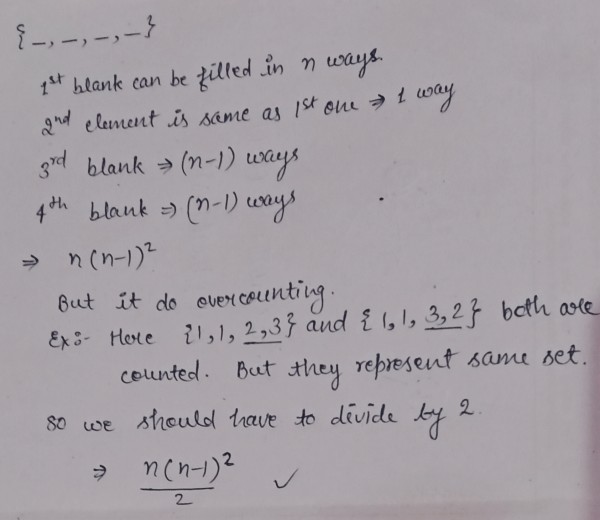 {_,_,_,_}
1st blank can be filled in n ways.
2nd element is same as 1st one ⇒ 1 way
3rd blank ⇒ (n-1) ways
4th blank ⇒ (n-1) ways
⇒ n(n-1)²
But it do overcounting.
Ex:- Here {1,1,2,3} and {1,1,3,2} both are
counted. But they represent same set.
so we should have to divide by 2.
⇒ n(n-1)²/2 ✓